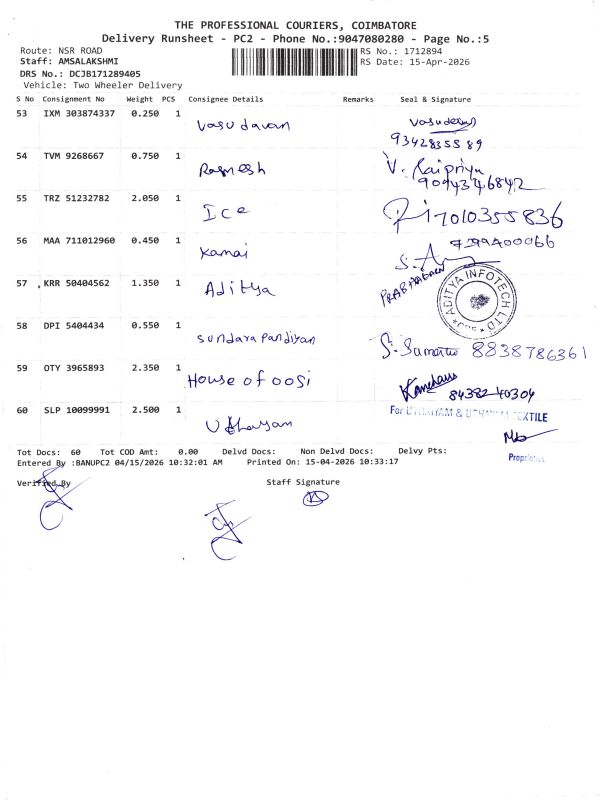 THE PROFESSIONAL COURIERS, COIMBATORE
Delivery Runsheet - PC2 - Phone No.:9047080280 - Page No.:5
Route: NSR ROAD
RS No.: 1712894
Staff: AMSALAKSHMI
RS Date: 15-Apr-2026
DRS No.: DCJB171289405
Vehicle: Two Wheeler Delivery
S No Consignment No Weight PCS Consignee Details Remarks Seal & Signature
53 IXM 303874337 0.250 1 Vasudavan
9342835589
54 TVM 9268667 0.750 1 Ragnesh V. Raipriya
9094346842
55 TRZ 51232782 2.050 1 Ice 7010355836
56 MAA 711012960 0.450 1 Kamai
57 KRR 50404562 1.350 1 Aditya
ADITYA INFOTECH LTD
58 DPI 5404434 0.550 1 Sundara Pandiyan 8838786361
59 OTY 3965893 2.350 1 House of oosi
84382 40304
60 SLP 10099991 2.500 1
For UTHAYAM & UTHAYAM TEXTILE
Proprietor
Tot Docs: 60 Tot COD Amt: 0.00 Delvd Docs: Non Delvd Docs: Delvy Pts:
Entered By :BANUPC2 04/15/2026 10:32:01 AM Printed On: 15-04-2026 10:33:17
Verified By Staff Signature